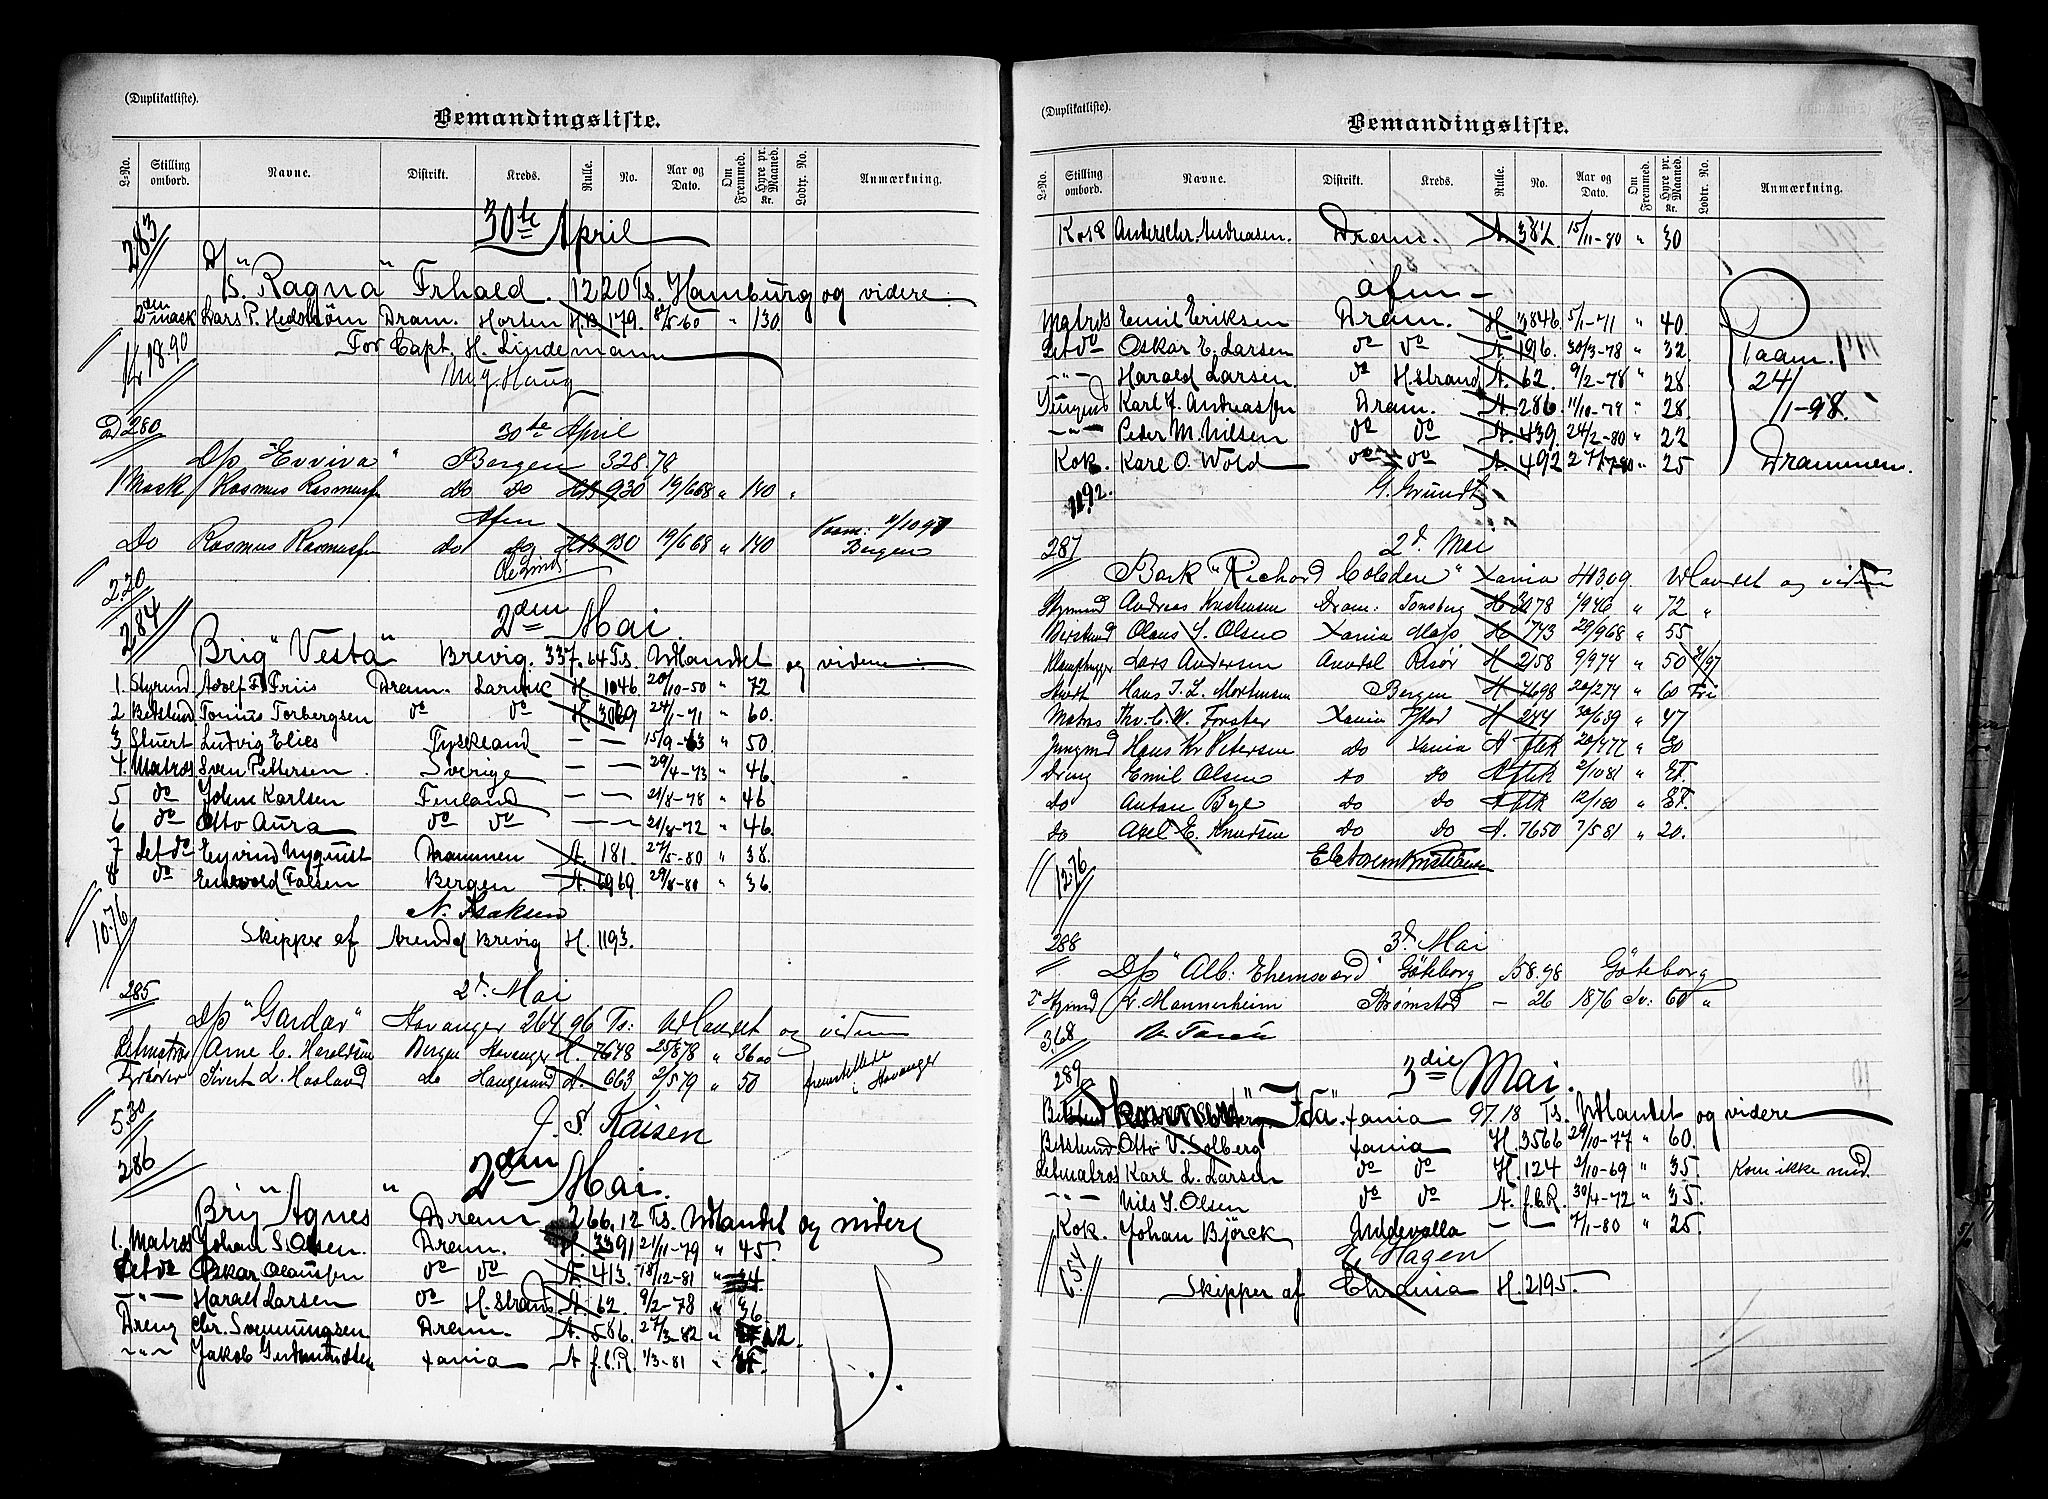 (Duplikatliste).
Bemandingsliste.
L-No. Stilling ombord. Navne. Distrikt. Kreds. Rulle. No. Aar og Dato. Om Fremmed. Hyre pr. Maaned. Kr. Lodtr. No. Anmærkning.
283 30te April
D/s. "Ragna" Frhald. 1220 Ts. Hamburg og videre
2den mask Lars P. Hedström Dram. Horten 179. 8/5-60 " 130.
Kr 18.90 For Capt. H. Lindemann
M. J. Haug
ad 280 30te April
D/s "Evviva" Bergen 328.78
1 Mask Rasmus Rasmuss do do 930 19/6 68 " 140 "
Afm
Do Rasmus Rasmuss do do 930 19/6 68 " 140 Paam: 4/10 97 Bergen
2.20
284 2den Mai.
Brig "Vesta" Brevig. 337.64 Ts. Udlandet og videre
1. Styrmd Adolf F. Friis Dram. Larvik H. 1046. 20/10-50 " 72
2 Betstmd Tonius Torbergsen do do H. 3069 24/1-71 " 60.
3 Stuert Ludvig Elies Tyskland — — 15/9-63 " 50.
4. Matros Sven Pettersen. Sverige — — 29/4-73 " 46.
5 do John Karlsen Finland — — 21/8-78 " 46
6 do Otto Aura do do — — 21/8-72 " 46.
7 Let do Eyvind Nyquist Drammen A. 181. 27/5-80 " 38.
8 do Enevold Falsen Bergen A. 6969 29/8-80 " 36.
10.76 N. Isaksen
Skipper af Arendal Brevig H. 1193.
285 2d. Mai
D/s "Gardar" Stavanger 264.96 Ts: Udlandet og videre
Letmatros Arne C. Haraldsen Bergen Stavanger H. 7648 25/8 78 " 36 00
Fyrbøder Sivert L. Hasland do Haugesund A. 663 2/5 79 " 50 fremstillede i Stavanger
5.30 J. S. Kaisen
286 2den Mai.
Brig "Agnes" Dram 266.12 Ts. Udlandet og videre
1. Matros Johan S. Olsen. Dram. H. 3391 21/11-79 " 45.
Let do Oskar Olaussen do do A. 413. 18/12-81 " 34
—"— Harald Larsen do H. strand A. 62. 9/2-78 " 36
Dreng Chr. Svenningsen Dram. A. 586. 27/3-82 " 22.
—"— Jakob Gudmundsen Xania A f.b.R. 1/3-81 "
(Duplikatliste).
Bemandingsliste.
L-No. Stilling ombord. Navne. Distrikt. Kreds. Rulle. No. Aar og Dato. Om Fremmed. Hyre pr. Maaned. Kr. Lodtr. No. Anmærkning.
Kok Anders Chr. Andreasen. Dram. A. 382 15/11-80 " 30
afm —
Matros Emil Eriksen Dram. H. 3846 5/11-71 " 40.
Let do Oskar E. Larsen do do A. 196. 30/3-78 " 32 Paam.
—"— Harald Larsen. do H. strand A. 62. 9/2-78 " 28 24/
Jungmd Karl J. Andreassen Dram. A. 286. 11/10-79 " 28. 11-98.
—"— Peder M. Nilsen do do A. 439. 24/2-80 " 22
Kok. Karl O. Wold do do A. 492 " 25 Drammen.
11.92. G. Grundt
287 2d. Mai
Bark "Richard Cobden" Xania 413.09. Udlandet og videre
Styrmand Andreas Kristensen Dram: Tønsberg H 3078 1/9 46 " 72 "
Olaus J. Olsen Xania Moss H 743 28/9 68 " 55
Lars Andersen Arendal Risør H 2158 9/9 74 " 50
Hans T. L. Mortensen Bergen H 7698 20/2 74 " 60 Fri
Matros Thv. C. W. Forster Xania H 244 30/6 39 " 47
Jungmd Hans Kr. Petersen do Xania A 20/4 77 " 30
Dreng Emil Olsen do do A 2/10 81 "
do Anton Bye do do A 12/1 80 "
do Axel E. Knudsen do do A. 7650 7/5 81 " 20.
12.76
288 3d. Mai
D/s "Alb: Ehrensvärd" Göteborg 158.98 Göteborg
2 Styrmd K. Mannerheim Strømstad — 26 1876 Sv: 60 "
3.68
289 3die Mai.
"Ida" Xania 97.18 Ts. Udlandet og videre
Betstmd. Otto V. Solberg Xania H. 3566 29/10-77 " 60.
Letmatros Karl L. Larsen do do H. 124 2/10-69 " 35. Kom ikke med.
—"— Nils J. Olsen do do A. f.b.R. 30/4-72 " 35.
Kok. Johan Björck Uddevalla — — 7/11-80 " 25.
6.54 Hagen
Skipper af Chrania H. 2195.